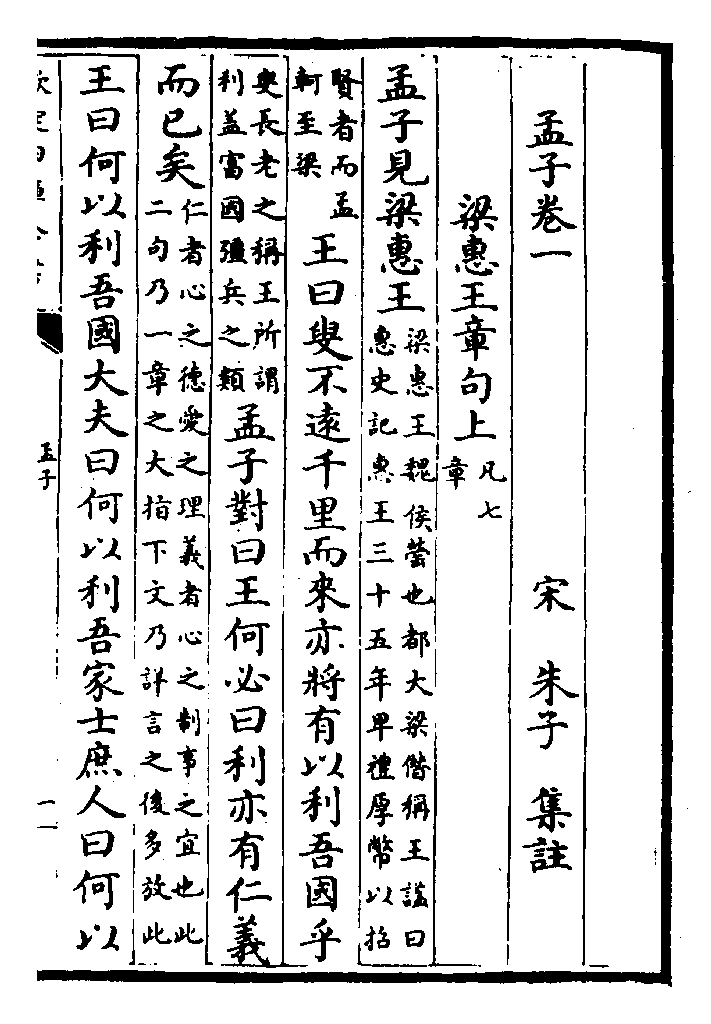 孟子卷一 宋 朱子 集註
梁惠王章句上 凡七
章
孟子見梁惠王 梁惠王魏侯罃也都大梁僭稱王諡曰
惠史記惠王三十五年卑禮厚幣以招
賢者而孟
軻至梁
王曰叟不遠千里而來亦將有以利吾國乎
叟長老之稱王所謂
利盖富國彊兵之類
孟子對曰王何必曰利亦有仁義
而已矣 仁者心之德愛之理義者心之制事之宜也此
二句乃一章之大指下文乃詳言之後多放此
王曰何以利吾國大夫曰何以利吾家士庶人曰何以
孟子